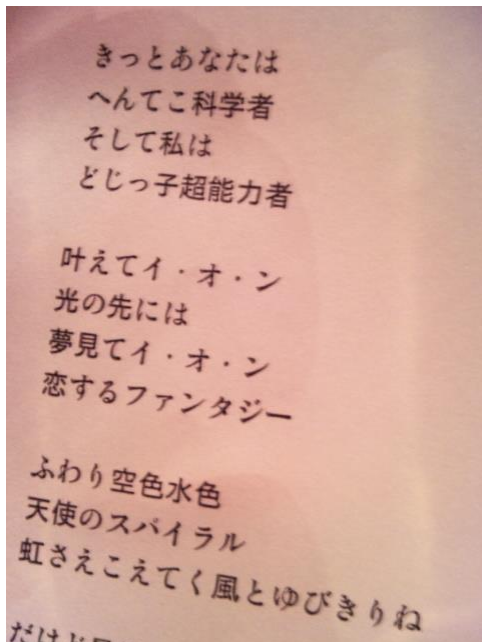 きっとあなたは
へんてこ科学者
そして私は
どじっ子超能力者
叶えてイ・オ・ン
光の先には
夢見てイ・オ・ン
恋するファンタジー
ふわり空色水色
天使のスパイラル
虹さえこえてく風とゆびきりね
だけど